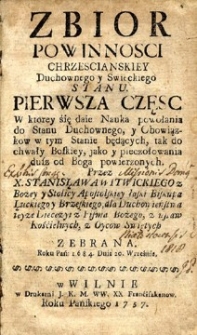 ZBIOR
POWINNOSCI
CHRZESCIANSKIEY
Duchownego y Swieckiego
STANU.
PIERWSZA CZĘSC
W ktorey się daie Nauka powołania
do Stanu Duchownego, y Obowiąz-
kow w tym Stanie będących, tak do
chwały Boskiey, jako y piecżołowania
dusz od Boga powierzonych.
Przez
X. STANISŁAWA WITWICKIEGO z
Bożey y Stolicy Apostolskiey łaski Biskupa
Łuckiego y Brzeskiego, dla Duchowieństwa
swoje Łuckiey z Pisma Bożego, z praw
Kościelnych, z Oycow Swiętych
ZEBRANA,
Roku Pań: 1684. Dnia 20. Września.
w WILNIE
w Drukarni J. K. M. WW. XX. Franciszkanow.
Roku Pańskiego 1757.